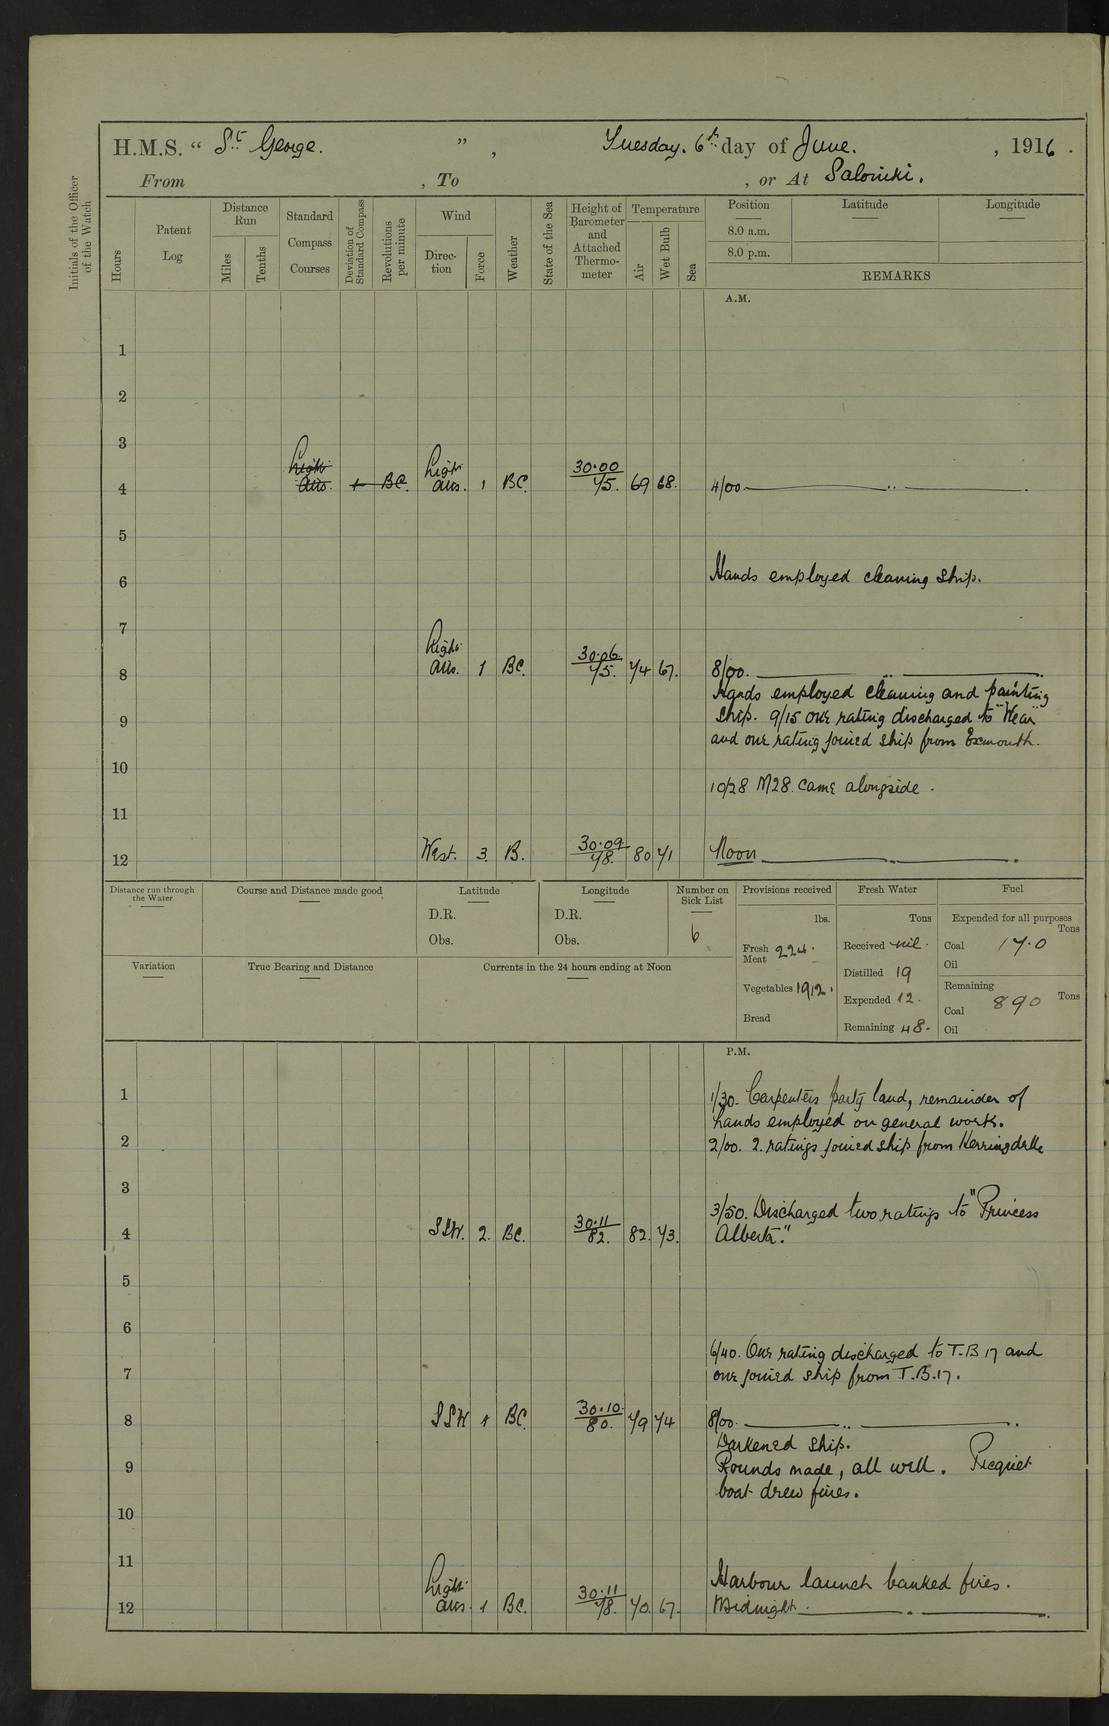 H.M.S. “ St George. ” , Tuesday. 6th day of June. , 1916 .
From , To , or At Salonicki.
Initials of the Officer of the Watch
Hours
Patent Log
Distance Run
Miles
Tenths
Standard Compass Courses
Deviation of Standard Compass
Revolutions per minute
Wind
Direction
Force
Weather
State of the Sea
Height of Barometer and Attached Thermometer
Temperature
Air
Wet Bulb
Sea
Position Latitude Longitude
8.0 a.m.
8.0 p.m.
REMARKS
A.M.
1
2
3
4 Light airs. 1 BC. Light airs. 1 BC. 30.00 75. 69 68. 4/00
5
6 Hands employed cleaning ship.
7
8 Light airs. 1 BC. 30.06 75. 74 67. 8/00.
Hands employed cleaning and painting
9 ship. 9/15 one rating discharged to "Wear"
and one rating joined ship from Exmouth.
10
10/28 M28. came alongside.
11
12 West. 3 B. 30.09 78. 80 71 Noon
Distance run through the Water
Course and Distance made good
Latitude
D.R.
Obs.
Longitude
D.R.
Obs.
Number on Sick List
6
Provisions received
lbs.
Fresh Meat 224.
Vegetables 1912.
Bread
Fresh Water
Tons
Received nil.
Distilled 19
Expended 12.
Remaining 48.
Fuel
Expended for all purposes
Tons
Coal 17.0
Oil
Remaining
Coal 890 Tons
Oil
Variation
True Bearing and Distance
Currents in the 24 hours ending at Noon
P.M.
1 1/30. Carpenters party land, remainder of
hands employed on general work.
2 2/00. 2. ratings joined ship from
3
3/50. Discharged two ratings to "Princess
4 SSW. 2. BC. 30.11 82. 82. 73. Alberta."
5
6
6/40. One rating discharged to T.B 17 and
7 one joined ship from T.B.17.
8 SSW 1 BC. 30.10. 80. 79 74 8/00.
Darkened ship.
9 Rounds made, all well. Picquet
boat drew fires.
10
11
Harbour launch banked fires.
12 Light airs. 1 BC. 30.11 78. 70. 67. Midnight.